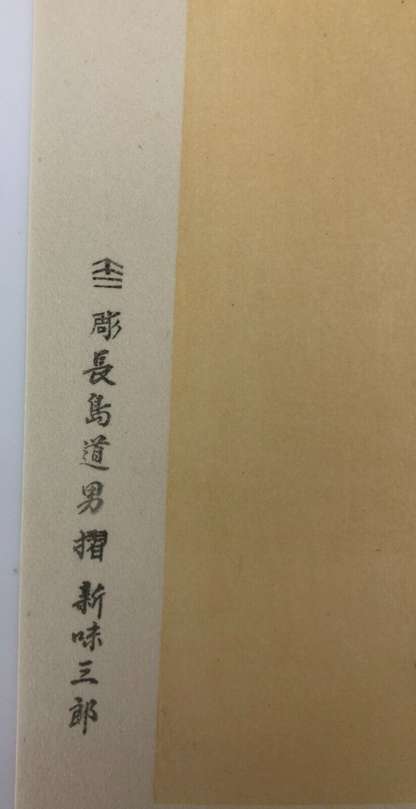 彫長島道男摺新味三郎